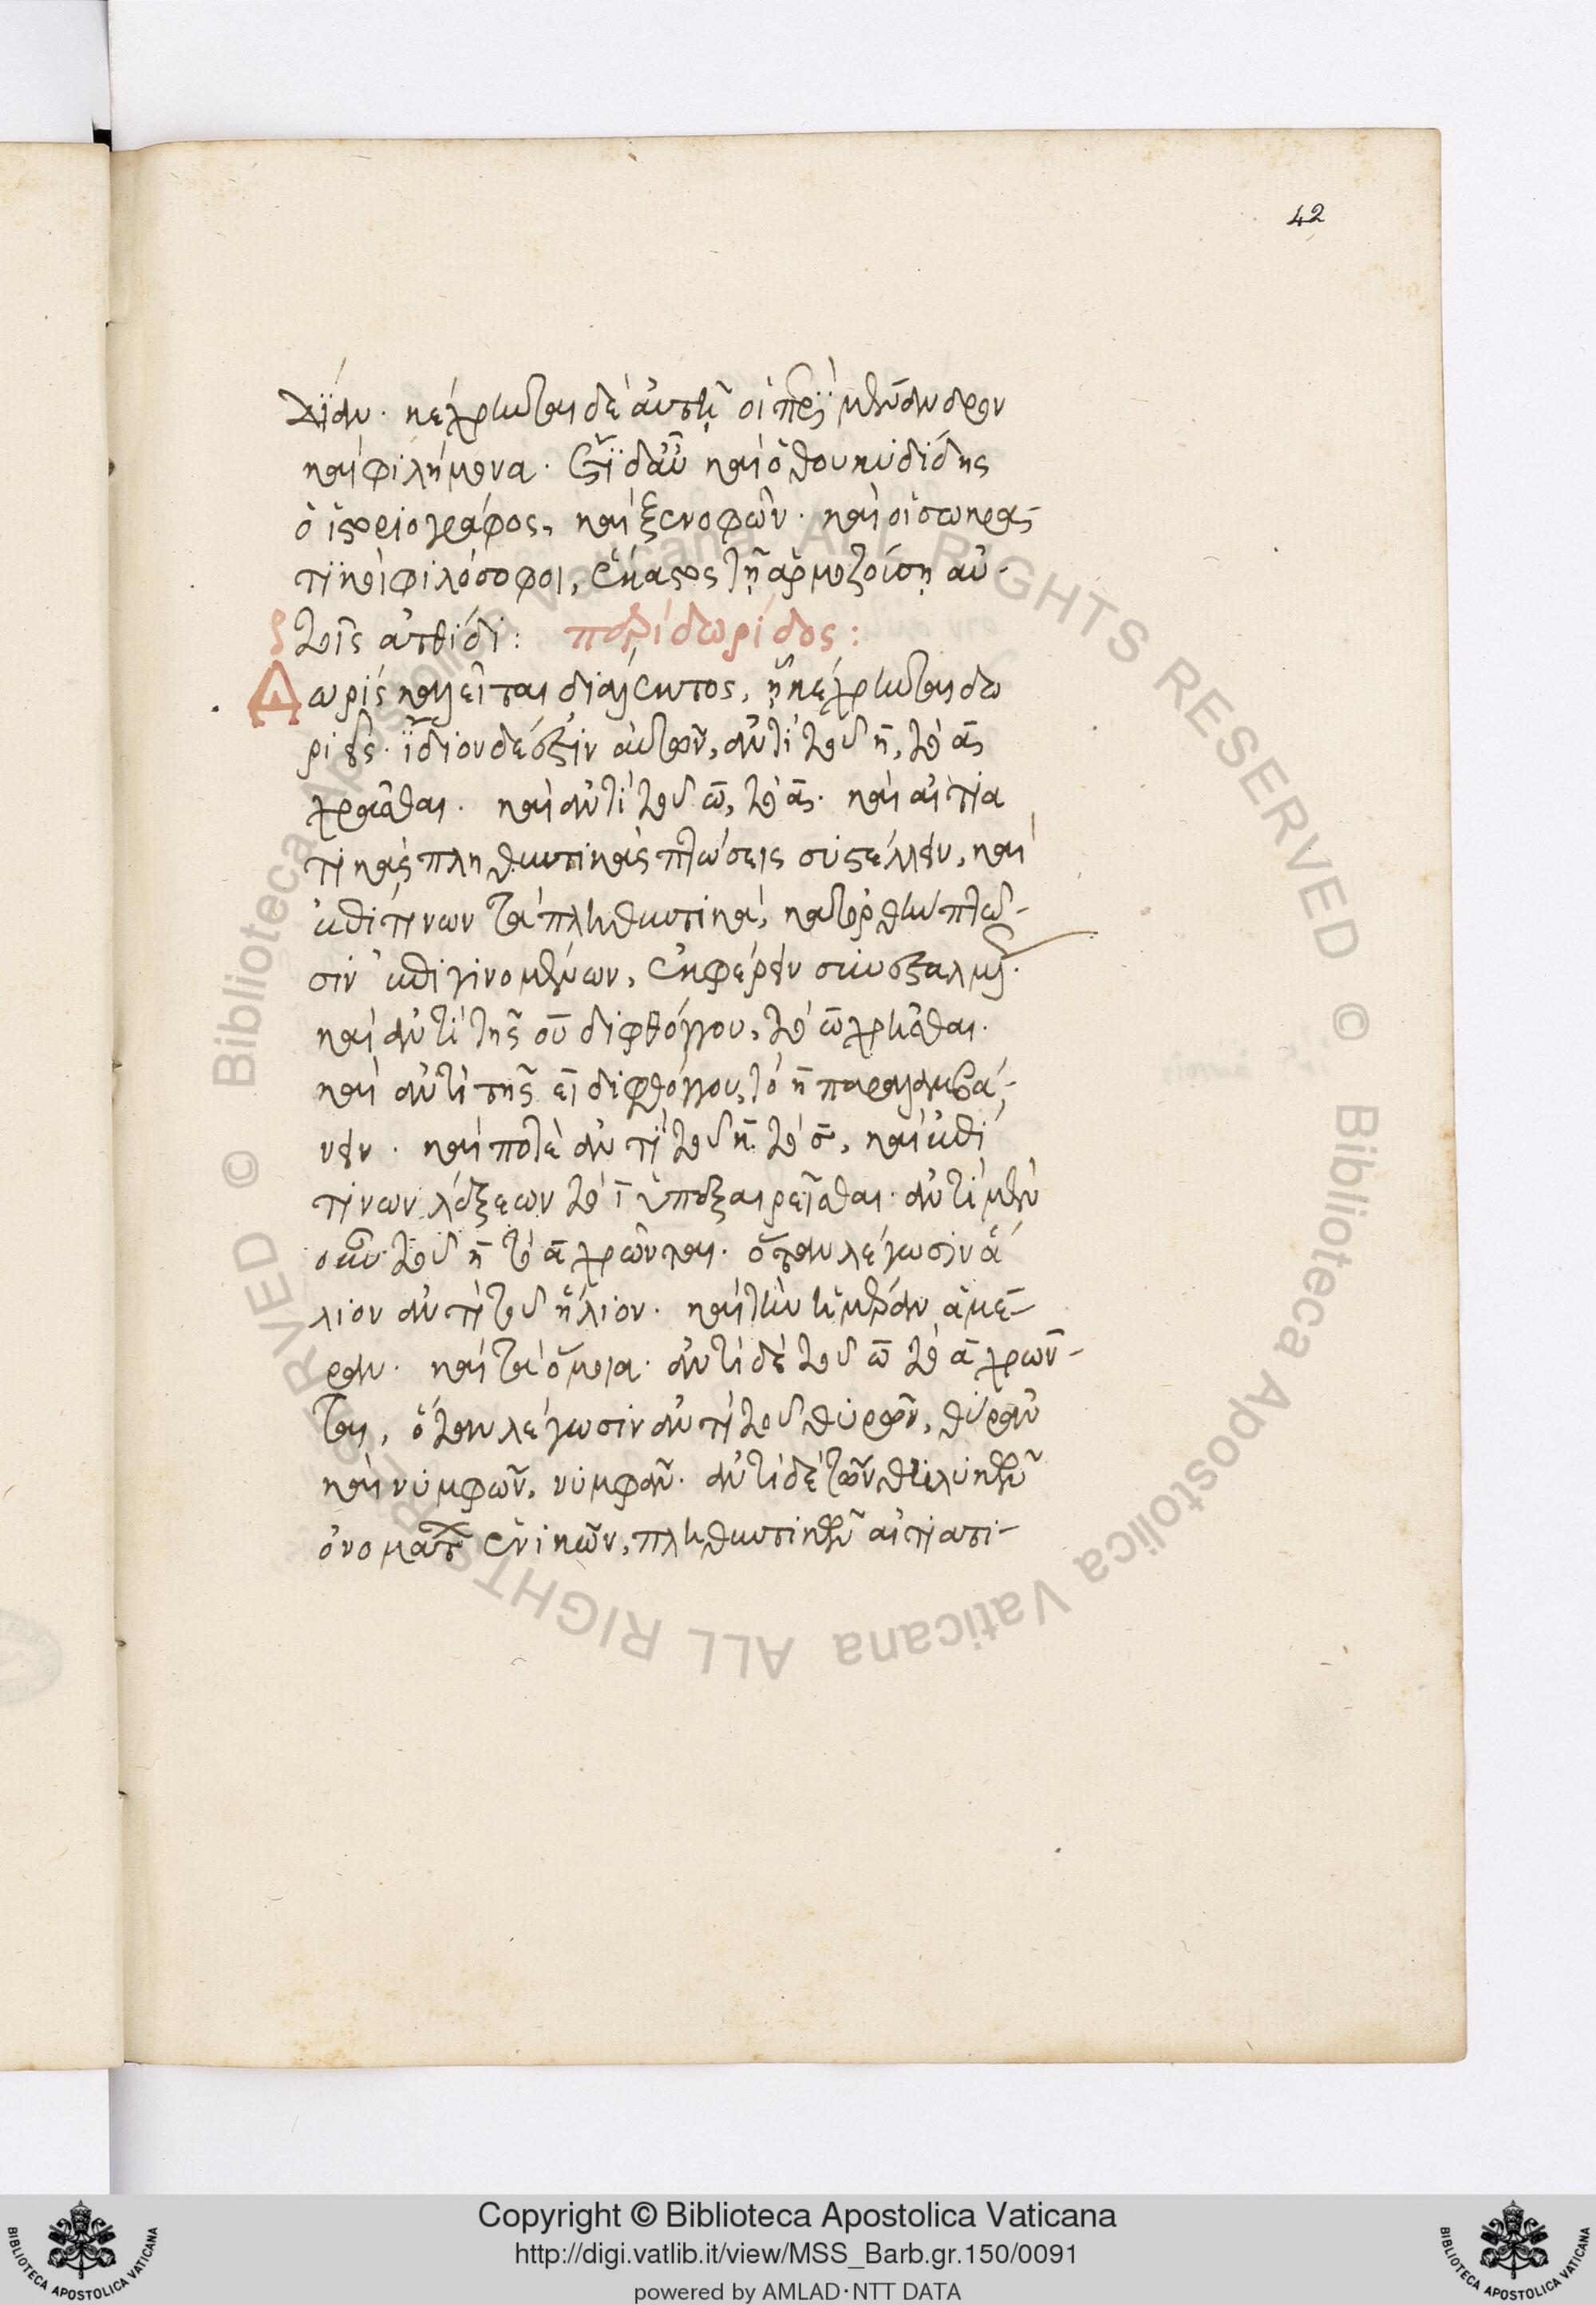 42
δίαν. κέχρηνται δὲ αὐτῇ οἱ περὶ μένανδρον
καὶ φιλήμονα. ἔτι δ' αὖ καὶ ὁ θουκυδίδης
ὁ ἱστοριογράφος, καὶ ξενοφῶν. καὶ οἱ σωκρα-
τικοὶ φιλόσοφοι, ἕκαστος τῇ ἁρμοζούσῃ αὐ-
τοῖς ἀτθίδι: περὶ δωρίδος:
Δωρὶς καλεῖται διάλεκτος, ᾗ κέχρηνται δω
ριεῖς. ἴδιον δέ ἐστιν αὐτῶν, ἀντὶ τοῦ η, τὸ ᾱ
χρᾶσθαι. καὶ ἀντὶ τοῦ ω, τὸ ᾱ. καὶ αἰτια
τικὰς πληθυντικὰς πτώσεις συστέλλειν, καὶ
ἐπί τινων τὰ πληθυντικά, κατ' ὀρθὴν πτῶ-
σιν ἐπιγινομένων, ἐκφέρειν σὺν
καὶ ἀντὶ τῆς ου διφθόγγου, τὸ ω χρῆσθαι.
καὶ ἀντὶ τῆς ει διφθόγγου, τὸ η παραλαμβά-
νειν. καὶ ποτὲ ἀντὶ τοῦ η τὸ σ, καὶ ἐπί
τινων λέξεων τὸ ι ὑπεξαιρεῖσθαι. ἀντὶ μὲν
οὖν τοῦ η τὸ ᾱ χρῶνται. ὅταν λέγωσιν ἅ
λιον ἀντὶ τοῦ ἥλιον. καὶ τὴν ἡμέραν ἁμέ-
ραν. καὶ τὰ ὅμοια. ἀντὶ δὲ τοῦ ω τὸ ᾱ χρῶν-
ται, ὅταν λέγωσιν ἀντὶ τοῦ θυρῶν, θυρᾶν
καὶ νυμφῶν, νυμφᾶν. ἀντὶ δὲ τῶν θηλυκῶν
ὀνομάτων ἑνικῶν, πληθυντικῶν αἰτιατι-
Copyright © Biblioteca Apostolica Vaticana
http://digi.vatlib.it/view/MSS_Barb.gr.150/0091
powered by AMLAD·NTT DATA
BIBLIOTECA APOSTOLICA VATICANA
BIBLIOTECA APOSTOLICA VATICANA
© Biblioteca Apostolica Vaticana ALL RIGHTS RESERVED © Biblioteca Apostolica Vaticana ALL RIGHTS RESERVED